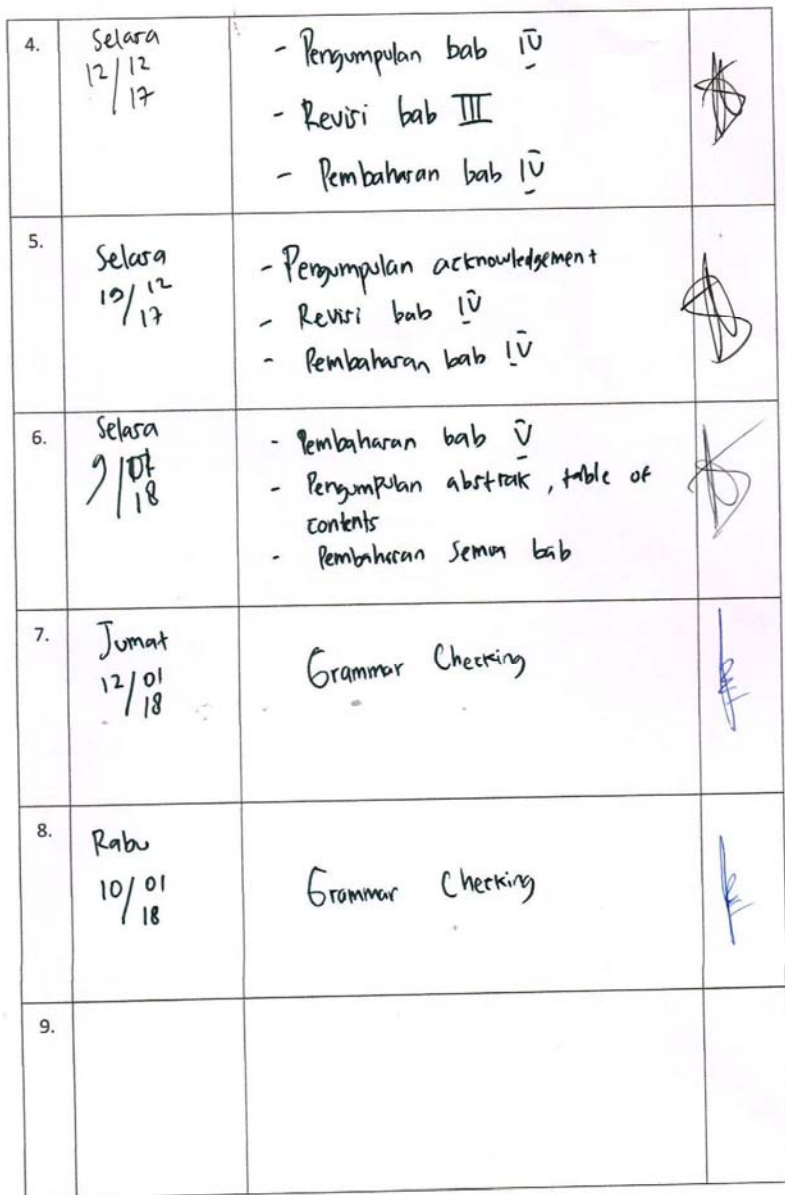 4.
Selasa
12/12
17
- Pengumpulan bab IV
- Revisi bab III
- Pembahasan bab IV
5.
Selasa
19/12
17
- Pengumpulan acknowledgement
- Revisi bab IV
- Pembahasan bab IV
6.
Selasa
9/01
18
- Pembahasan bab V
- Pengumpulan abstrak, table of
contents
- Pembahasan semua bab
7.
Jumat
12/01
18
Grammar Checking
8.
Rabu
10/01
18
Grammar Checking
9.